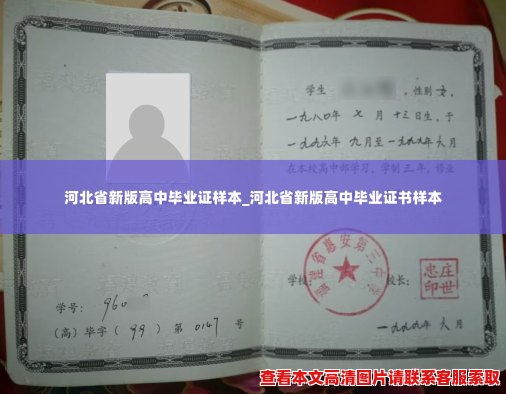 学生 ，性别 女，
一九八0年 七 月 十三日生，于
一九九六年 九月至 一九九九年 六月
在本校高中部学习，学制 三 年，修业
河北省新版高中毕业证样本_河北省新版高中毕业证书样本
福建省惠安第三中学
学校： 校长：
庄世忠印
学号： 960
(高) 毕字 ( 99 ) 第 0147 号
一九九九年 六 月
查看本文高清图片请联系客服索取